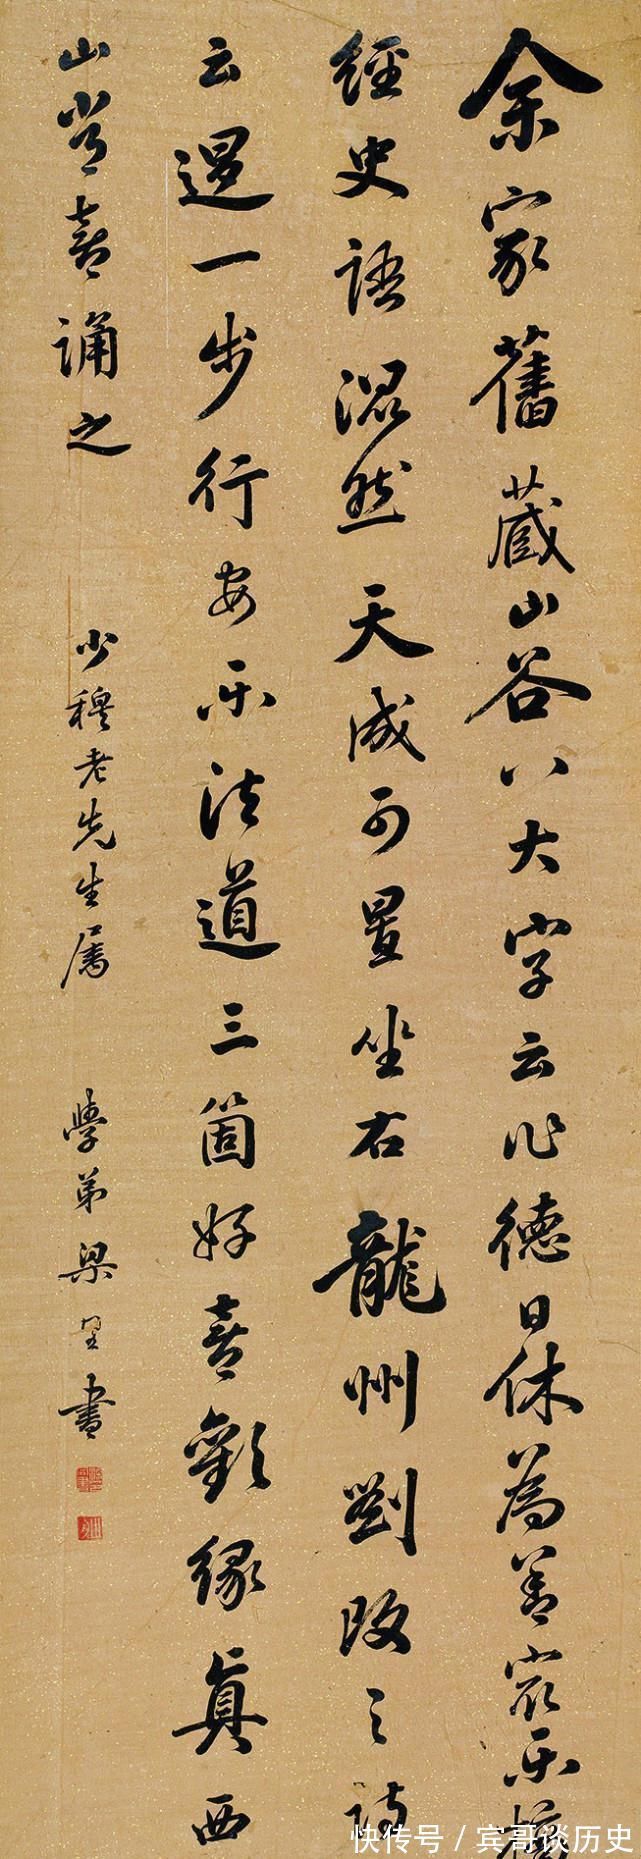 余家舊藏山谷八大字云作德日休為善最樂摭
經史語混然天成可置坐右龍州劉改之詩
云退一步行安樂法道三箇好喜歡緣真西
山常喜誦之
少穆老先生屬
學弟梁書
快传号 / 宾哥谈历史